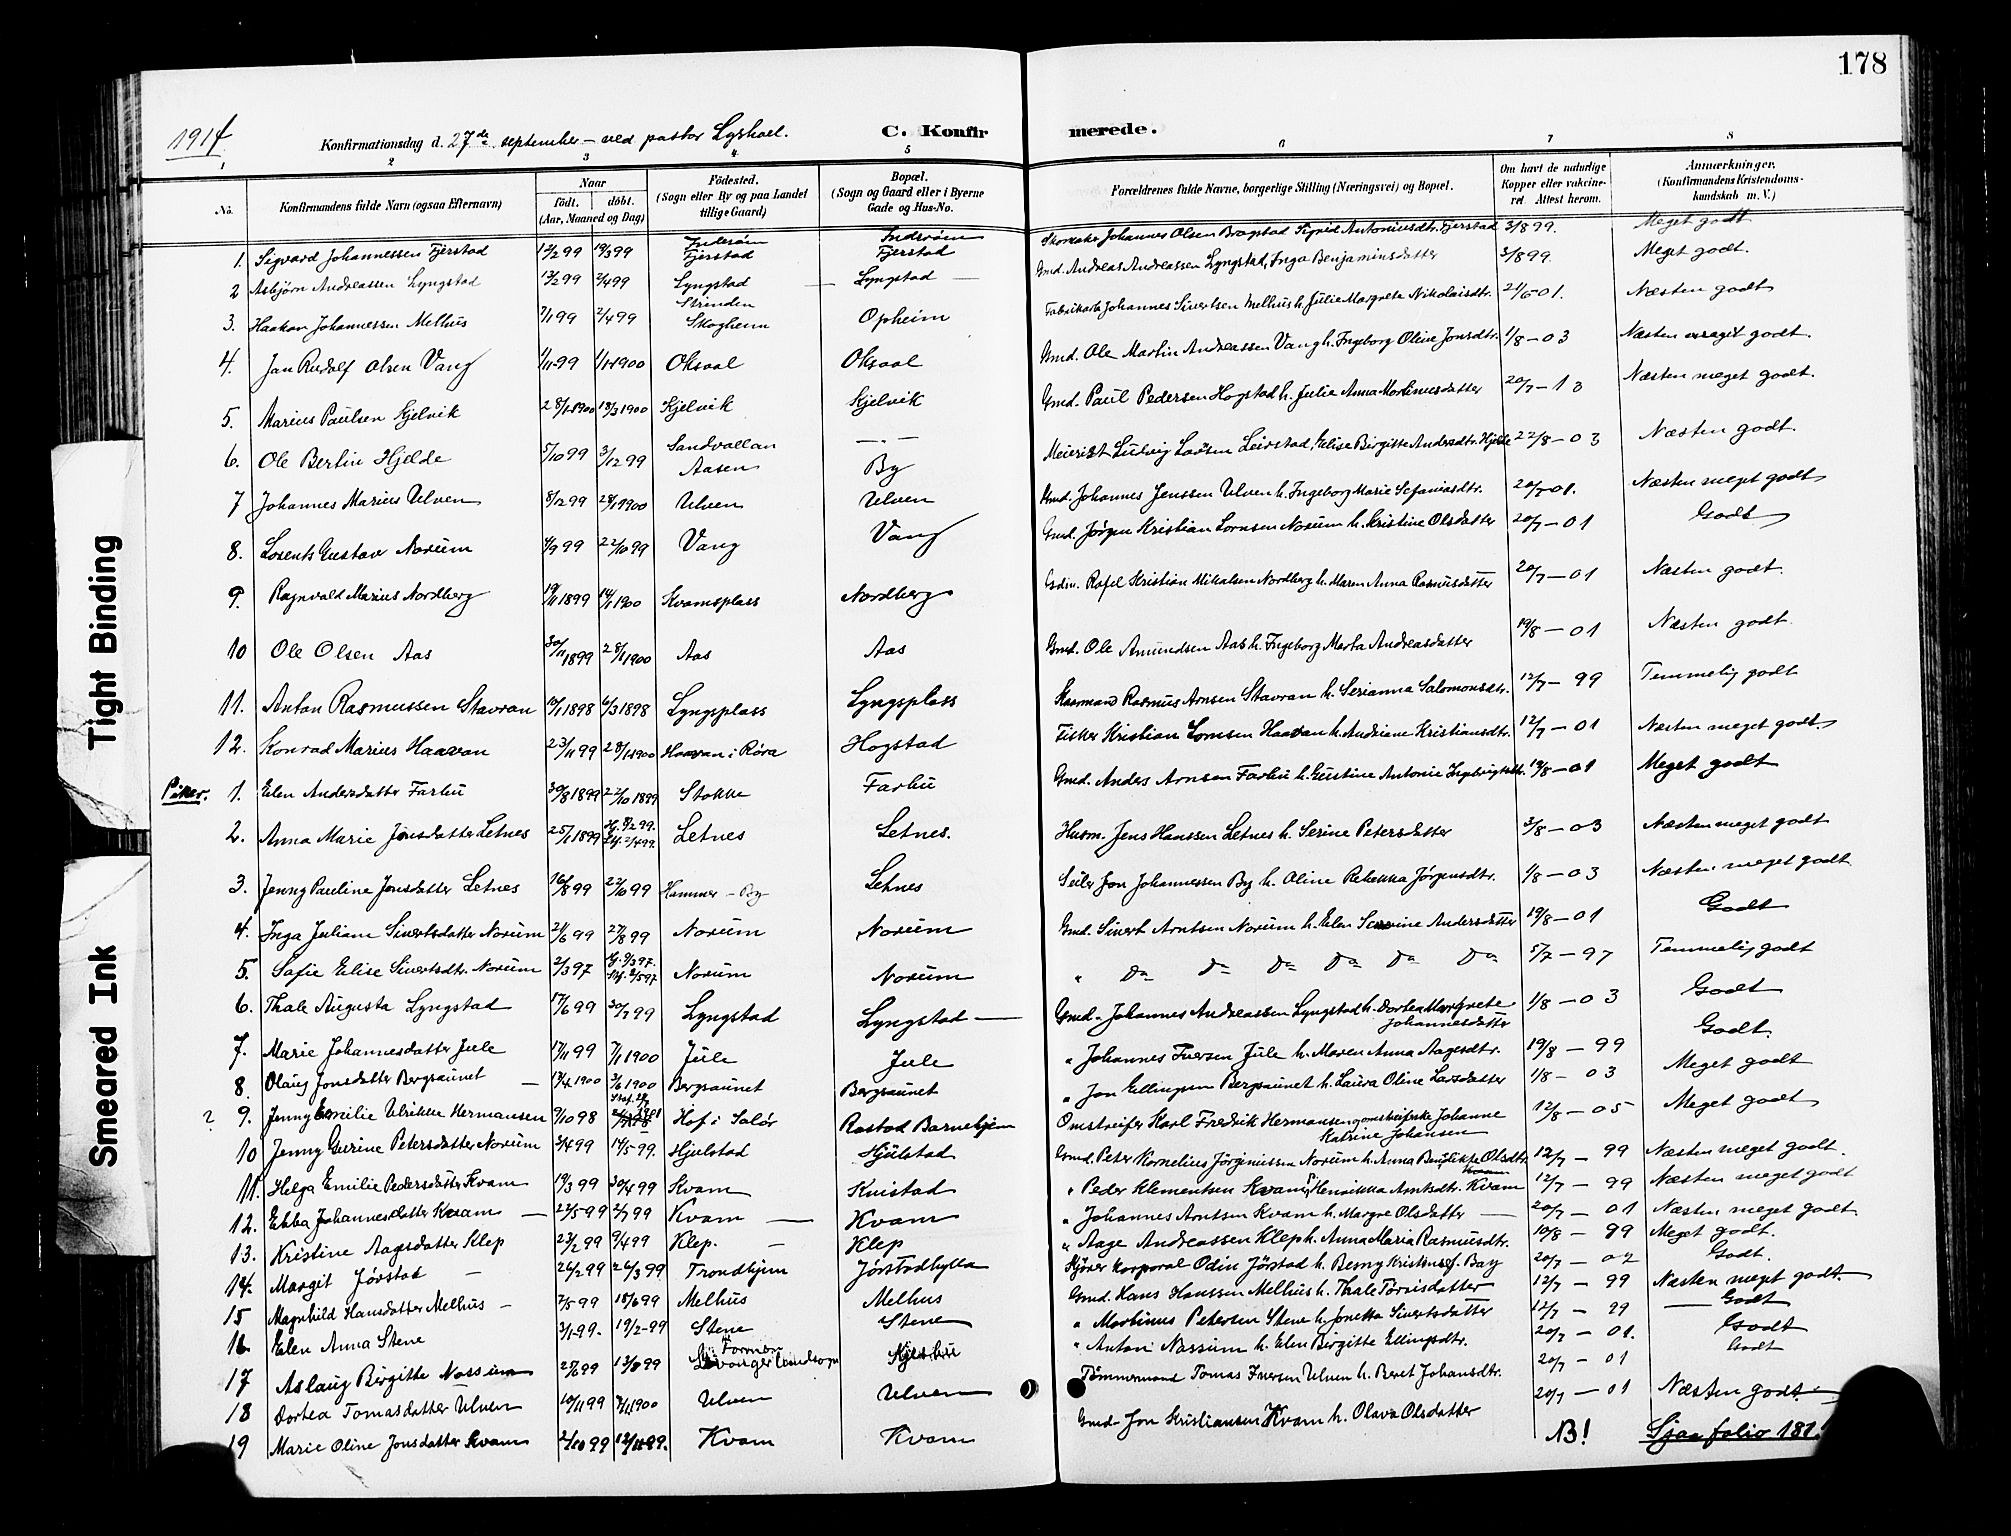 178
1914
Konfirmationsdag d. 27de september – ved pastor Lyshoel.
C. Konfir
merede.
1 2 3 4 5 6 7 8
No. Konfirmandens fulde Navn (ogsaa Efternavn) Naar født. døbt. (Aar, Maaned og Dag) Födested. (Sogn eller By og paa Landet tillige Gaard) Bopæl. (Sogn og Gaard eller i Byerne Gade og Hus-No. Forældrenes fulde Navne, borgerlige Stilling (Næringsvei) og Bopæl. Om havt de naturlige Kopper eller vakcineret. Attest herom. Anmærkninger. (Konfirmandens Kristendomskundskab m. V.)
1. Sigvard Johannessen Fjerstad 12/2 99 19/3 99 Inderöen Fjerstad Inderöen Fjerstad Skomaker Johannes Olsen Bragstad Sigrid Antoniusdtr. Fjerstad 3/8 99. Meget godt
2 Asbjørn Andreassen Lyngstad 13/2 99 2/4 99 Lyngstad — Lyngstad — Gmd. Andreas Andreassen Lyngstad, Inga Benjaminsdatter 3/8 99 Meget godt.
3. Haakon Johannessen Melhus 7/1 99 2/4 99 Strinden Skogheim Opheim Fabrikarb. Johannes Sivertsen Melhus h. Julie Margrete Nikolaisdtr. 21/6 01. Næsten godt
4. Jan Rudolf Olsen Vang 1/11 99 1/1 1900 Oksaal Oksaal Gmd. Ole Martin Andreassen Vang h. Ingeborg Oline Jonsdtr. 1/8 – 03 Næsten meget godt.
5. Marius Paulsen Kjelvik 28/1 1900 18/3 1900 Kjelvik Kjelvik Gmd. Paul Pedersen Hogstad h. Julie Anna Martinusdatter 20/7 – 13 Næsten meget godt.
6. Ole Bertin Hjelde 5/10 99 3/12 99 Sandvollan Aasen — . — By Meierist Ludvig Larsen Leirstad, Elise Birgitte Andersdtr. Hjelde 22/8 – 03 Næsten godt.
7 Johannes Marius Ulven 8/12 99 28/1 1900 Ulven Ulven Gmd. Johannes Jenssen Ulven h. Ingeborg Marie Sefaniasdtr. 20/7 01. Næsten meget godt
8. Lorents Gustav Norum 4/9 99 22/10 99 Vang Vang Gmd. Jörgen Kristian Lornsen Norum h. Kristine Olsdatter 20/7 – 01 Godt
9. Ragnvald Marius Nordberg 19/11 1899 14/1 1900 Kvamsplass Nordberg Gdm. Rafel Kristian Mikalsen Nordberg h. Maren Anna Rasmusdatter 20/7 – 01 Næsten godt.
10 Ole Olsen Aas 30/11 1899 28/1 1900 Aas Aas Gmd. Ole Amundsen Aas h. Ingeborg Marta Andreasdatter 19/8 – 01 Næsten godt.
11. Anton Rasmussen Stavran 10/1 1898 6/3 1898 Lyngsplass Lyngsplass Kaarmand Rasmus Arnsen Stavran h. Serianna Salomonsdtr. 12/7 – 99 Temmelig godt
12. Konrad Marius Haavan 23/11 99 28/1 1900 Haavan i Røra Hogstad Fisker Kristian Lornsen Haavan h. Andriane Kristiansdtr. 12/7 – 01 Næsten meget godt.
Piker. 1. Elen Andersdatter Farhu 30/8 1899 22/10 1899 Stokke Farhu Gmd. Anders Arnsen Farhu h. Gustine Antonie 19/8 – 01 Meget godt
2. Anna Marie Jensdatter Letnes 25/1 1899 Hj. 8/2 99. Stf. 2/4 99. Letnes Letnes. Husm. Jens Hanssen Letnes h. Serine Petersdatter 3/8 – 03 Næsten meget godt
3. Jenny Pauline Jonsdatter Letnes 16/8 99 22/10 99 Hammer – By Letnes Seiler Jon Johannessen By h. Oline Rebekka Jørgensdtr. 1/8 – 03 Næsten meget godt
4. Inga Juliane Sivertsdatter Norum 21/6 99 27/8 99 Norum Norum Gmd. Sivert Arntsen Norum h. Elen Severine Andersdatter 19/8 – 01 Godt
5. Sofie Elise Sivertsdtr. Norum 2/3 97 Hj. 9/3 97. Stf. 2/5 97 Norum Norum " Do Do Do Do Do Do 5/7 – 97 Temmelig godt
6. Thale Augusta Lyngstad 17/6 99 30/7 99 Lyngstad Lyngstad — Gmd. Johannes Andreassen Lyngstad h. Dortea Margrete Johannesdatter 1/8 – 03 Godt
7. Marie Johannesdatter Jule 17/11 99 7/1 1900 Jule Jule " Johannes Iversen Jule h. Maren Anna Aagesdtr. 19/8 – 99 Godt.
8. Olaug Jonsdatter Bergsaunet — 13/4 1900 3/6 1900 Bergsaunet Bergsaunet " Jon Ellingsen Bergsaunet h. Laura Oline Larsdatter 1/8 – 03 Meget godt
? 9. Jenny Emilie Ulrikke Hermansen 9/10 98 Hof i Solør Rostad Barnehjem Omstreifer Karl Fredrik Hermansen og omstreiferske Johanne Katrine Johansen 12/8 – 05 Meget godt
10 Jenny Gurine Petersdatter Norum 3/4 99 14/5 99. Hjulstad Hjulstad Gmd. Peter Kornelius Jörginussen Norum h. Anna Benedikte Olsdtr. 12/7 – 99 Næsten meget godt.
11. Helga Emilie Pedersdatter Kvam 19/3 99 30/4 99 Kvam Knistad " Peder Klementsen Kvam, Henrikka Arntsdtr. Kvam 12/7 – 99 Næsten meget godt
12. Ebba Johannesdatter Kvam — 22/5 99 2/7 99 Kvam — Kvam " Johannes Arntsen Kvam h. Margre Olsdatter — 20/7 – 01 Næsten meget godt.
13. Kristine Aagesdatter Klep 23/2 99 9/4 99 Klep. – Klep " Aage Andreassen Klep h. Anna Maria Rasmusdtr. 10/8 – 99 Meget godt.
14. Margit Jørstad — 26/2 99 26/3 99 Trondhjem Jørstadhylla Kjører korporal Odin Jørstad h. Berny Kristinef. Bay 20/7 – 07 Godt.
15 Magnhild Hansdatter Melhus – 7/5 99 18/6 99 Melhus Melhus Gmd. Hans Hanssen Melhus h. Thale Törrisdatter 12/7 – 99 Næsten meget godt.
16 Elen Anna Stene 3/1 99. 19/2 99 Stene Stene " Martinus Petersen Stene h. Jonetta Sivertsdatter 12/7 – 99 — Godt
17 Aslaug Birgitte Nossum 13/8 99 Levanger landsogn " Anton Nossum h. Elen Birgitte Ellingsdtr. 20/7 – 01. Godt
18 Dortea Tomasdatter Ulven 10/11 99 7/1 1900 Ulven Ulven Tömmermand Tomas Iversen Ulven h. Beret Johansdtr. 20/7 – 01 Godt
19 Marie Oline Jonsdatter Kvam 2/10 99 12/11 99. Kvam Kvam Gmd. Jon Kristiansen Kvam h. Olava Olsdatter 20/7 – 01 Næsten godt.
NB! Sjaa folio 181!
Tight Binding
Smeared Ink